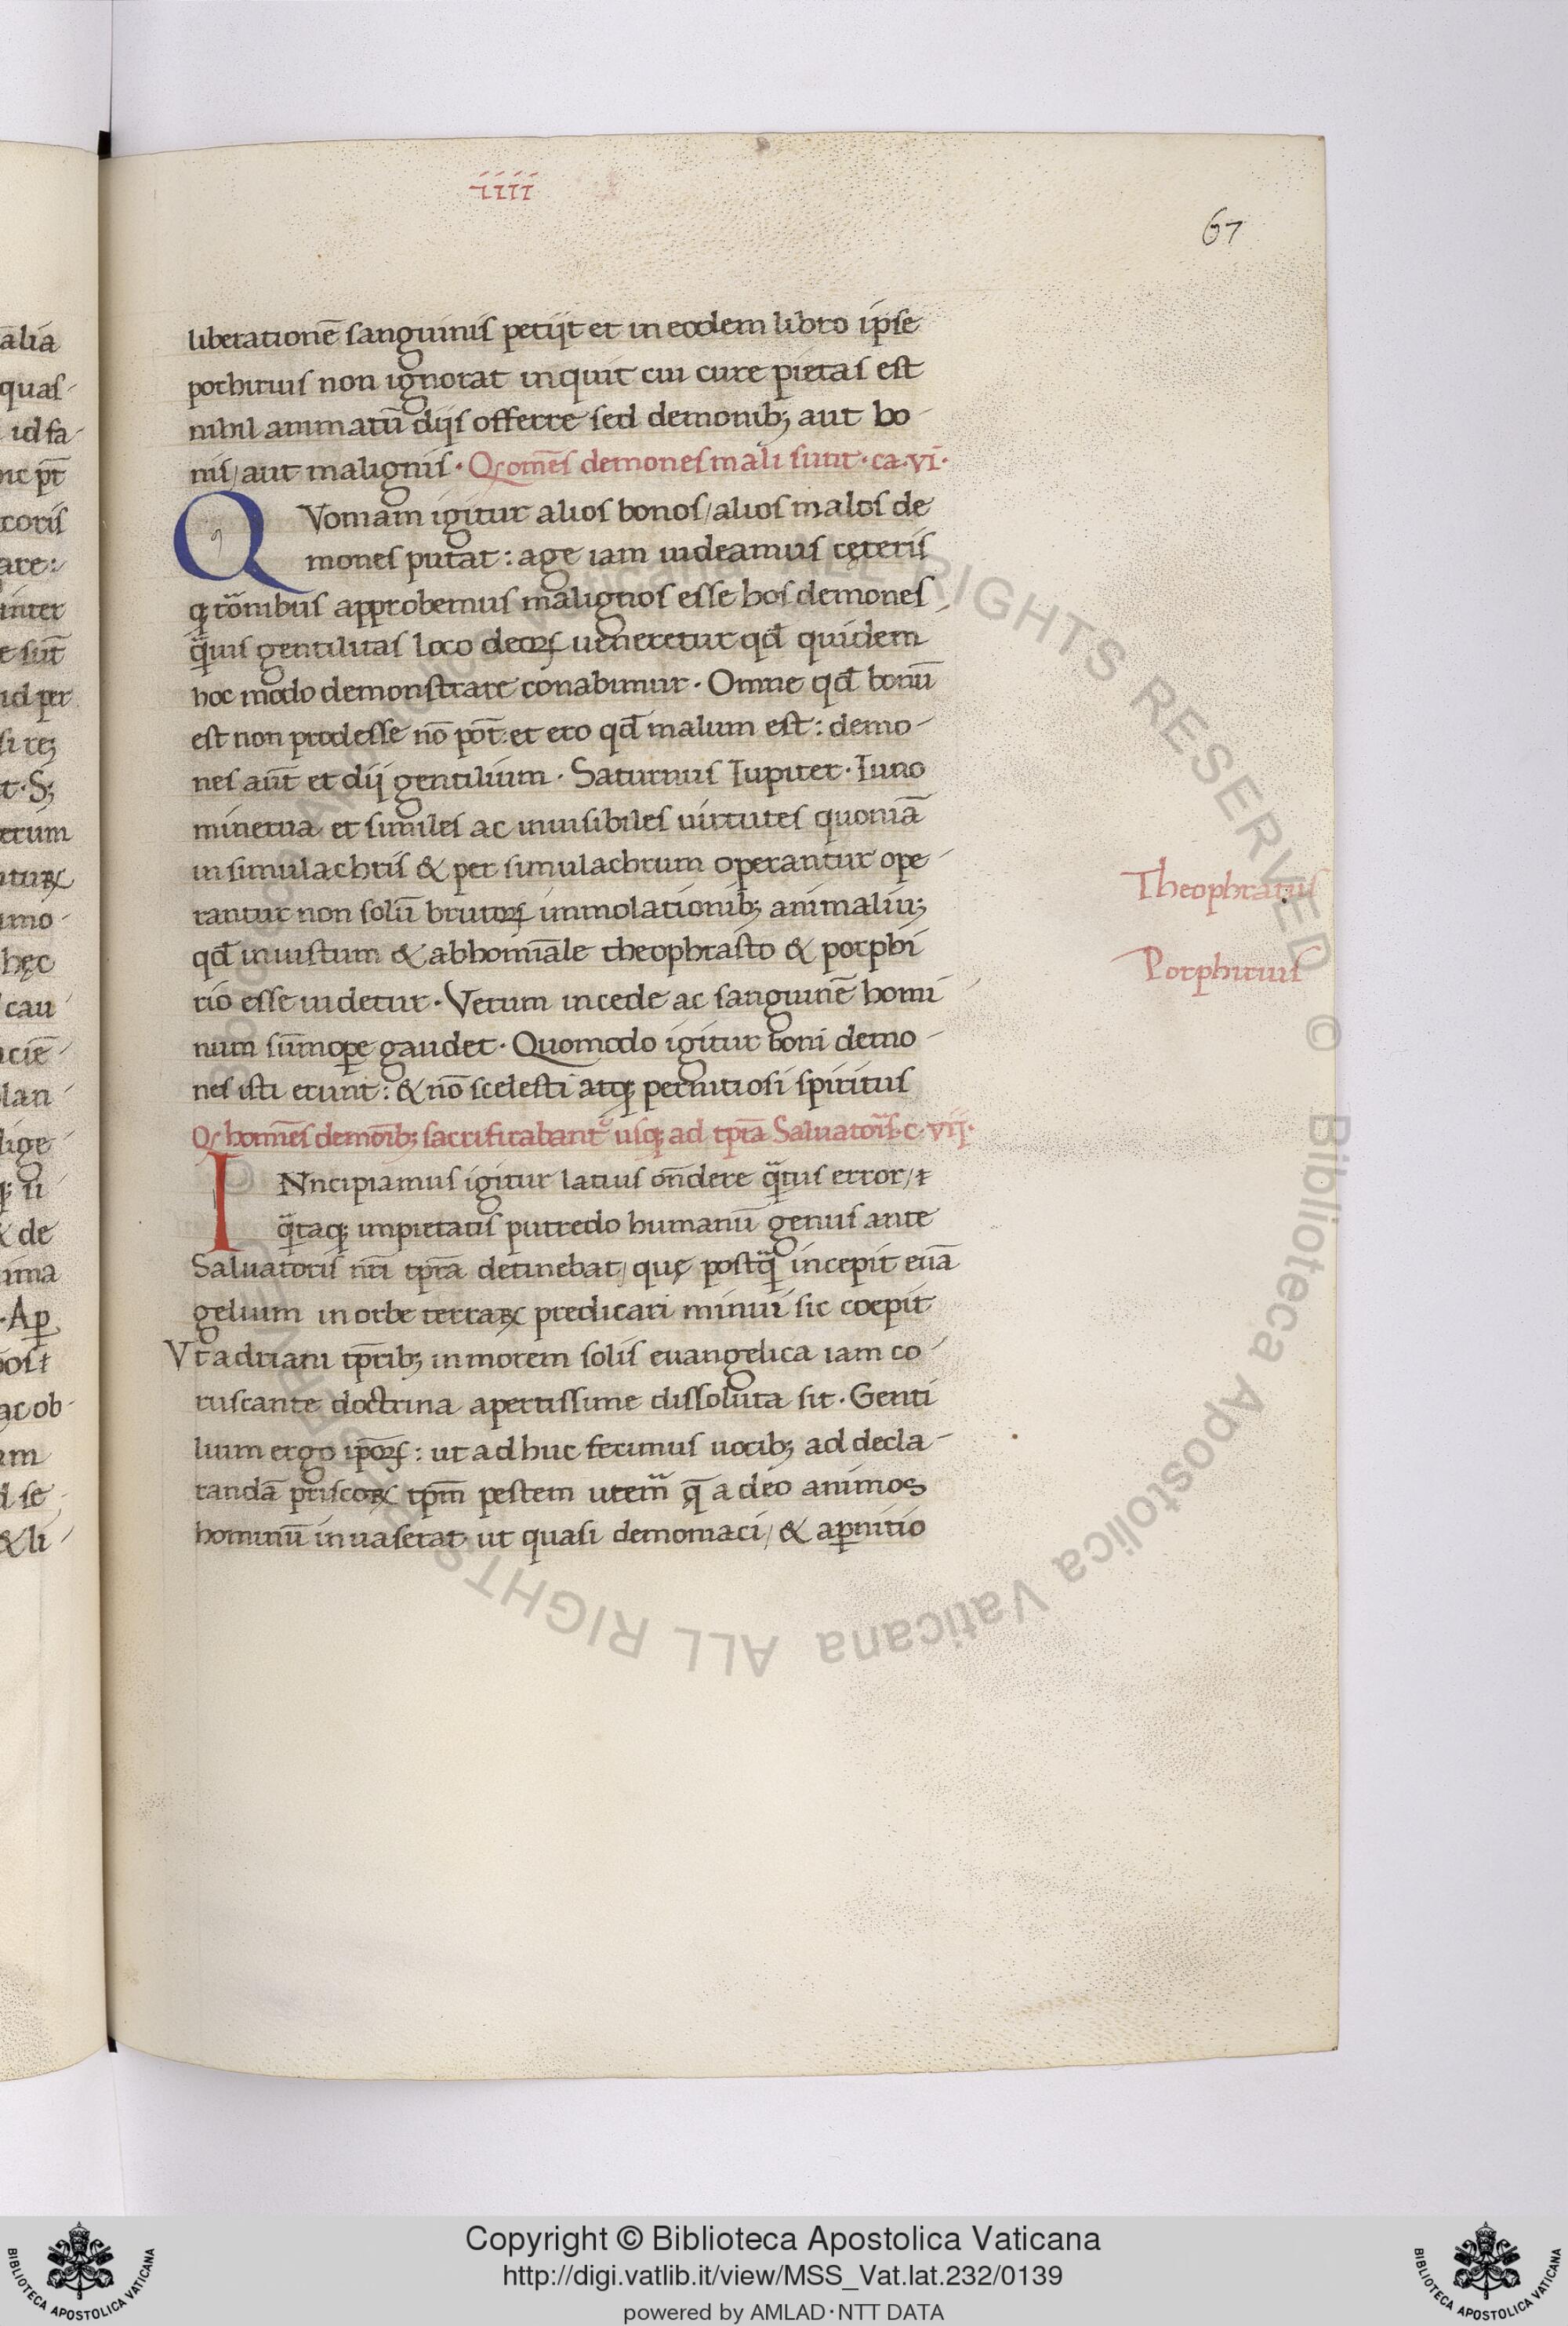 iiii
67
liberationē sanguinis petijt et in eodem libro ipse
porhirius non ignorat inquit cui cure pietas est
nihil animatū dijs offerre sed demonib; aut bo-
nis/aut malignis. Qꝫ omēs demones mali sunt. ca. vi.
QVoniam igitur alios bonos/alios malos de
mones putat: age iam uideamus cęteris
qꝫ rōnibus approbemus malignos esse hos demones
qͣuis gentilitas loco deorꝝ ueneretur qđ quidem
hoc modo demonstrare conabimur. Omne qđ bonū
est non prodesse nō pōt: et eco qđ malum est: demo-
nes aūt et dij gentilium. Saturnus Iupiter. Iuno
minerua et similes ac inuisibiles uirtutes quoniā
in simulachris & per simulachrum operantur ope-
rantur non solū brutorꝝ immolationib; animaliū;
qđ iniustum & abhomiāle theophrasto & porphi
rio esse uidetur. Verum in cede ac sanguinē homi
num sūmope gaudet. Quomodo igitur boni demo-
nes isti erunt: & nō scelesti atqꝫ pernitiosi spiritus
Theophratus
Porphirius
Qꝫ homēs demonib; sacrificabant᷑ usqꝫ ad tpra Saluatoris. c. vij.
INncipiamus igitur latius on̄dere qͣtus error/⁊
qͣtaqꝫ impietatis putredo humanū genus ante
Saluatoris nr̄i tpr̄a detinebat/quę postqͣ incepit euā
gelium in orbe terraꝝ predicari minui sic coepit
Vt adriani tpr̄ib; in morem solis euangelica iam co-
ruscante doctrina apertissime dissoluta sit. Genti
lium ergo ip̄orꝝ: ut ad huc fecimus uocib; ad decla-
randā priscoꝝ tpm̄ pestem utemͣ q̄ a deo animos
hominū inuaserat ut quasi demoniaci/& apnitio
Copyright © Biblioteca Apostolica Vaticana
http://digi.vatlib.it/view/MSS_Vat.lat.232/0139
powered by AMLAD·NTT DATA
BIBLIOTECA APOSTOLICA VATICANA
BIBLIOTECA APOSTOLICA VATICANA